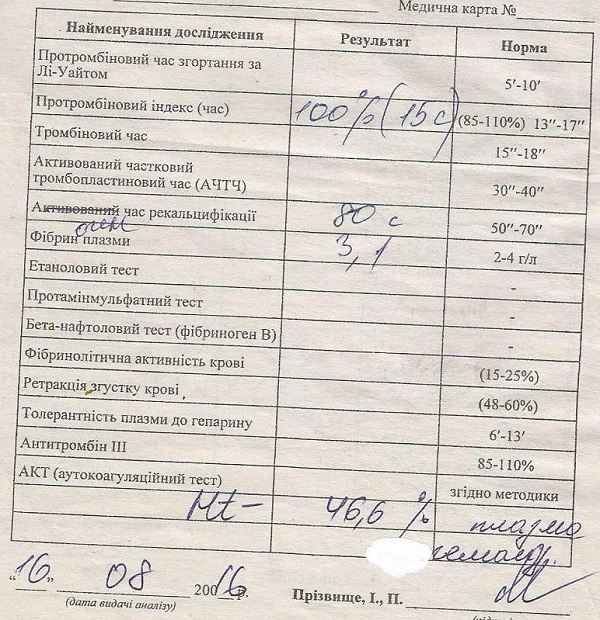 Медична карта №
Найменування дослідження Результат Норма
Протромбіновий час згортання за Лі-Уайтом 5'-10'
Протромбіновий індекс (час) 100% (15 с) (85-110%) 13"-17"
Тромбіновий час 15"-18"
Активований частковий тромбопластиновий час (АЧТЧ) 30"-40"
Активований час рекальцифікації 80 с 50"-70"
Фібрин плазми 3,1 2-4 г/л
Етаноловий тест -
Протамінмульфатний тест -
Бета-нафтоловий тест (фібриноген В) -
Фібринолітична активність крові (15-25%)
Ретракція згустку крові (48-60%)
Толерантність плазми до гепарину 6'-13'
Антитромбін III 85-110%
АКТ (аутокоагуляційний тест) згідно методики
Ht- 46,6 % плазма
"16" 08 2016р. Прізвище, І., П.
(дата видачі аналізу)